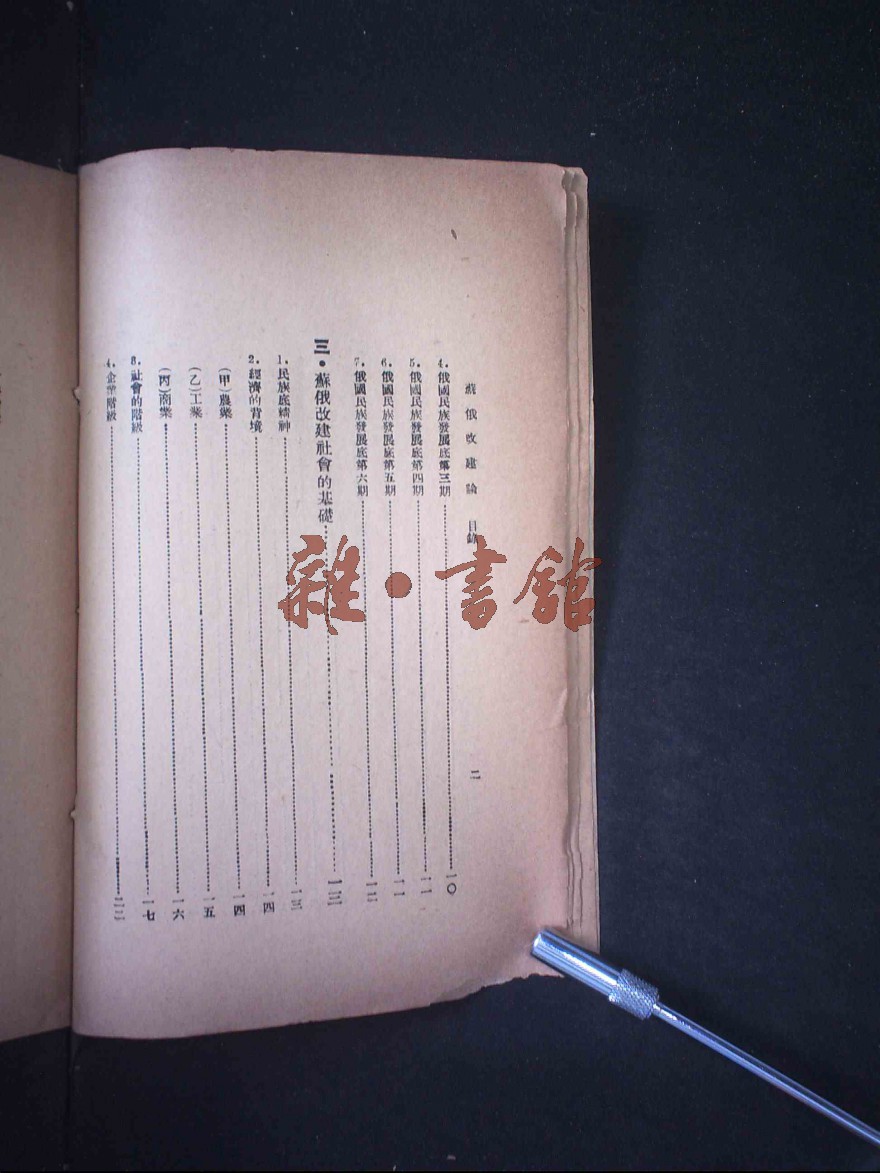 蘇俄改建論 目錄 二
4. 俄國民族發展底第三期 一〇
5. 俄國民族發展底第四期 一一
6. 俄國民族發展底第五期 一一
7. 俄國民族發展底第六期 一二
三. 蘇俄改建社會的基礎 一三
1. 民族底精神 一三
2. 經濟的背境 一四
(甲)農業 一四
(乙)工業 一五
(丙)商業 一六
3. 社會的階級 一七
4. 企業階級
雜·書館